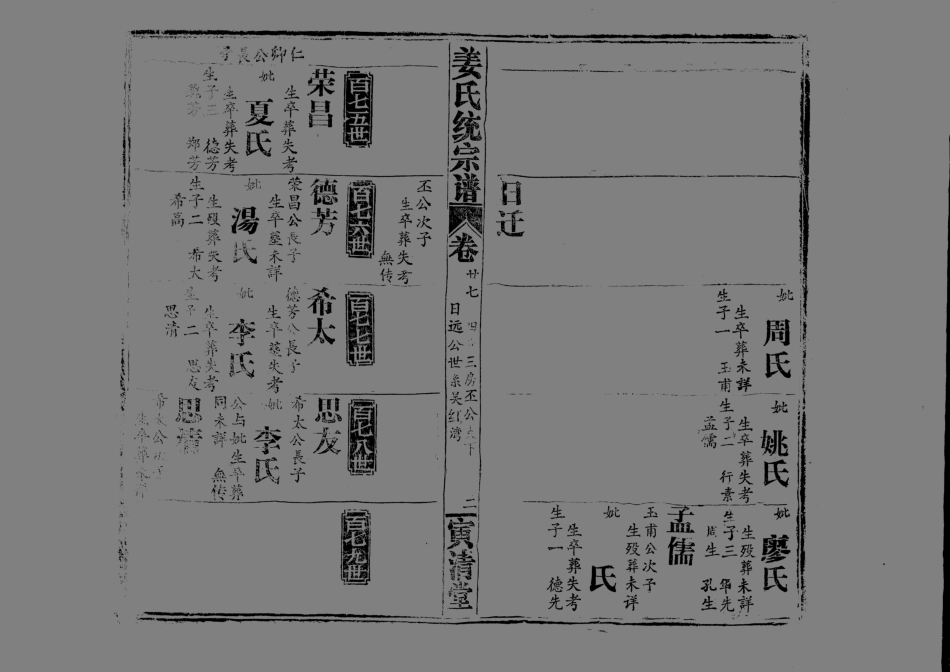 日迁
妣
周氏
生卒葬未詳
生子一 玉甫
妣
姚氏
生卒葬失考
生子二 行素
孟儒
妣
廖氏
生殁葬未詳
生子三 华先
周生 孔生
孟儒
玉甫公次子
生殁葬未详
妣
氏
生卒葬失考
生子一 德先
姜氏统宗谱
卷
廿七
三房丕公
日远公世系吴红湾
二
寅清堂
丕公次子
生卒葬失考
無传
百七五世
荣昌
仁卿公長子
生卒葬失考
妣
夏氏
生卒葬失考
生子三 德芳
郑芳
百七六世
德芳
荣昌公長子
生卒葬未詳
妣
湯氏
生殁葬失考
生子二 希太
希高
百七七世
希太
德芳公長子
生卒葬失考
妣
李氏
生卒葬失考
生子二 思友
思清
百七八世
思友
希太公長子
妣
李氏
公与妣生卒葬
同未詳 無传
思清
希太公次子
生卒葬
百七九世